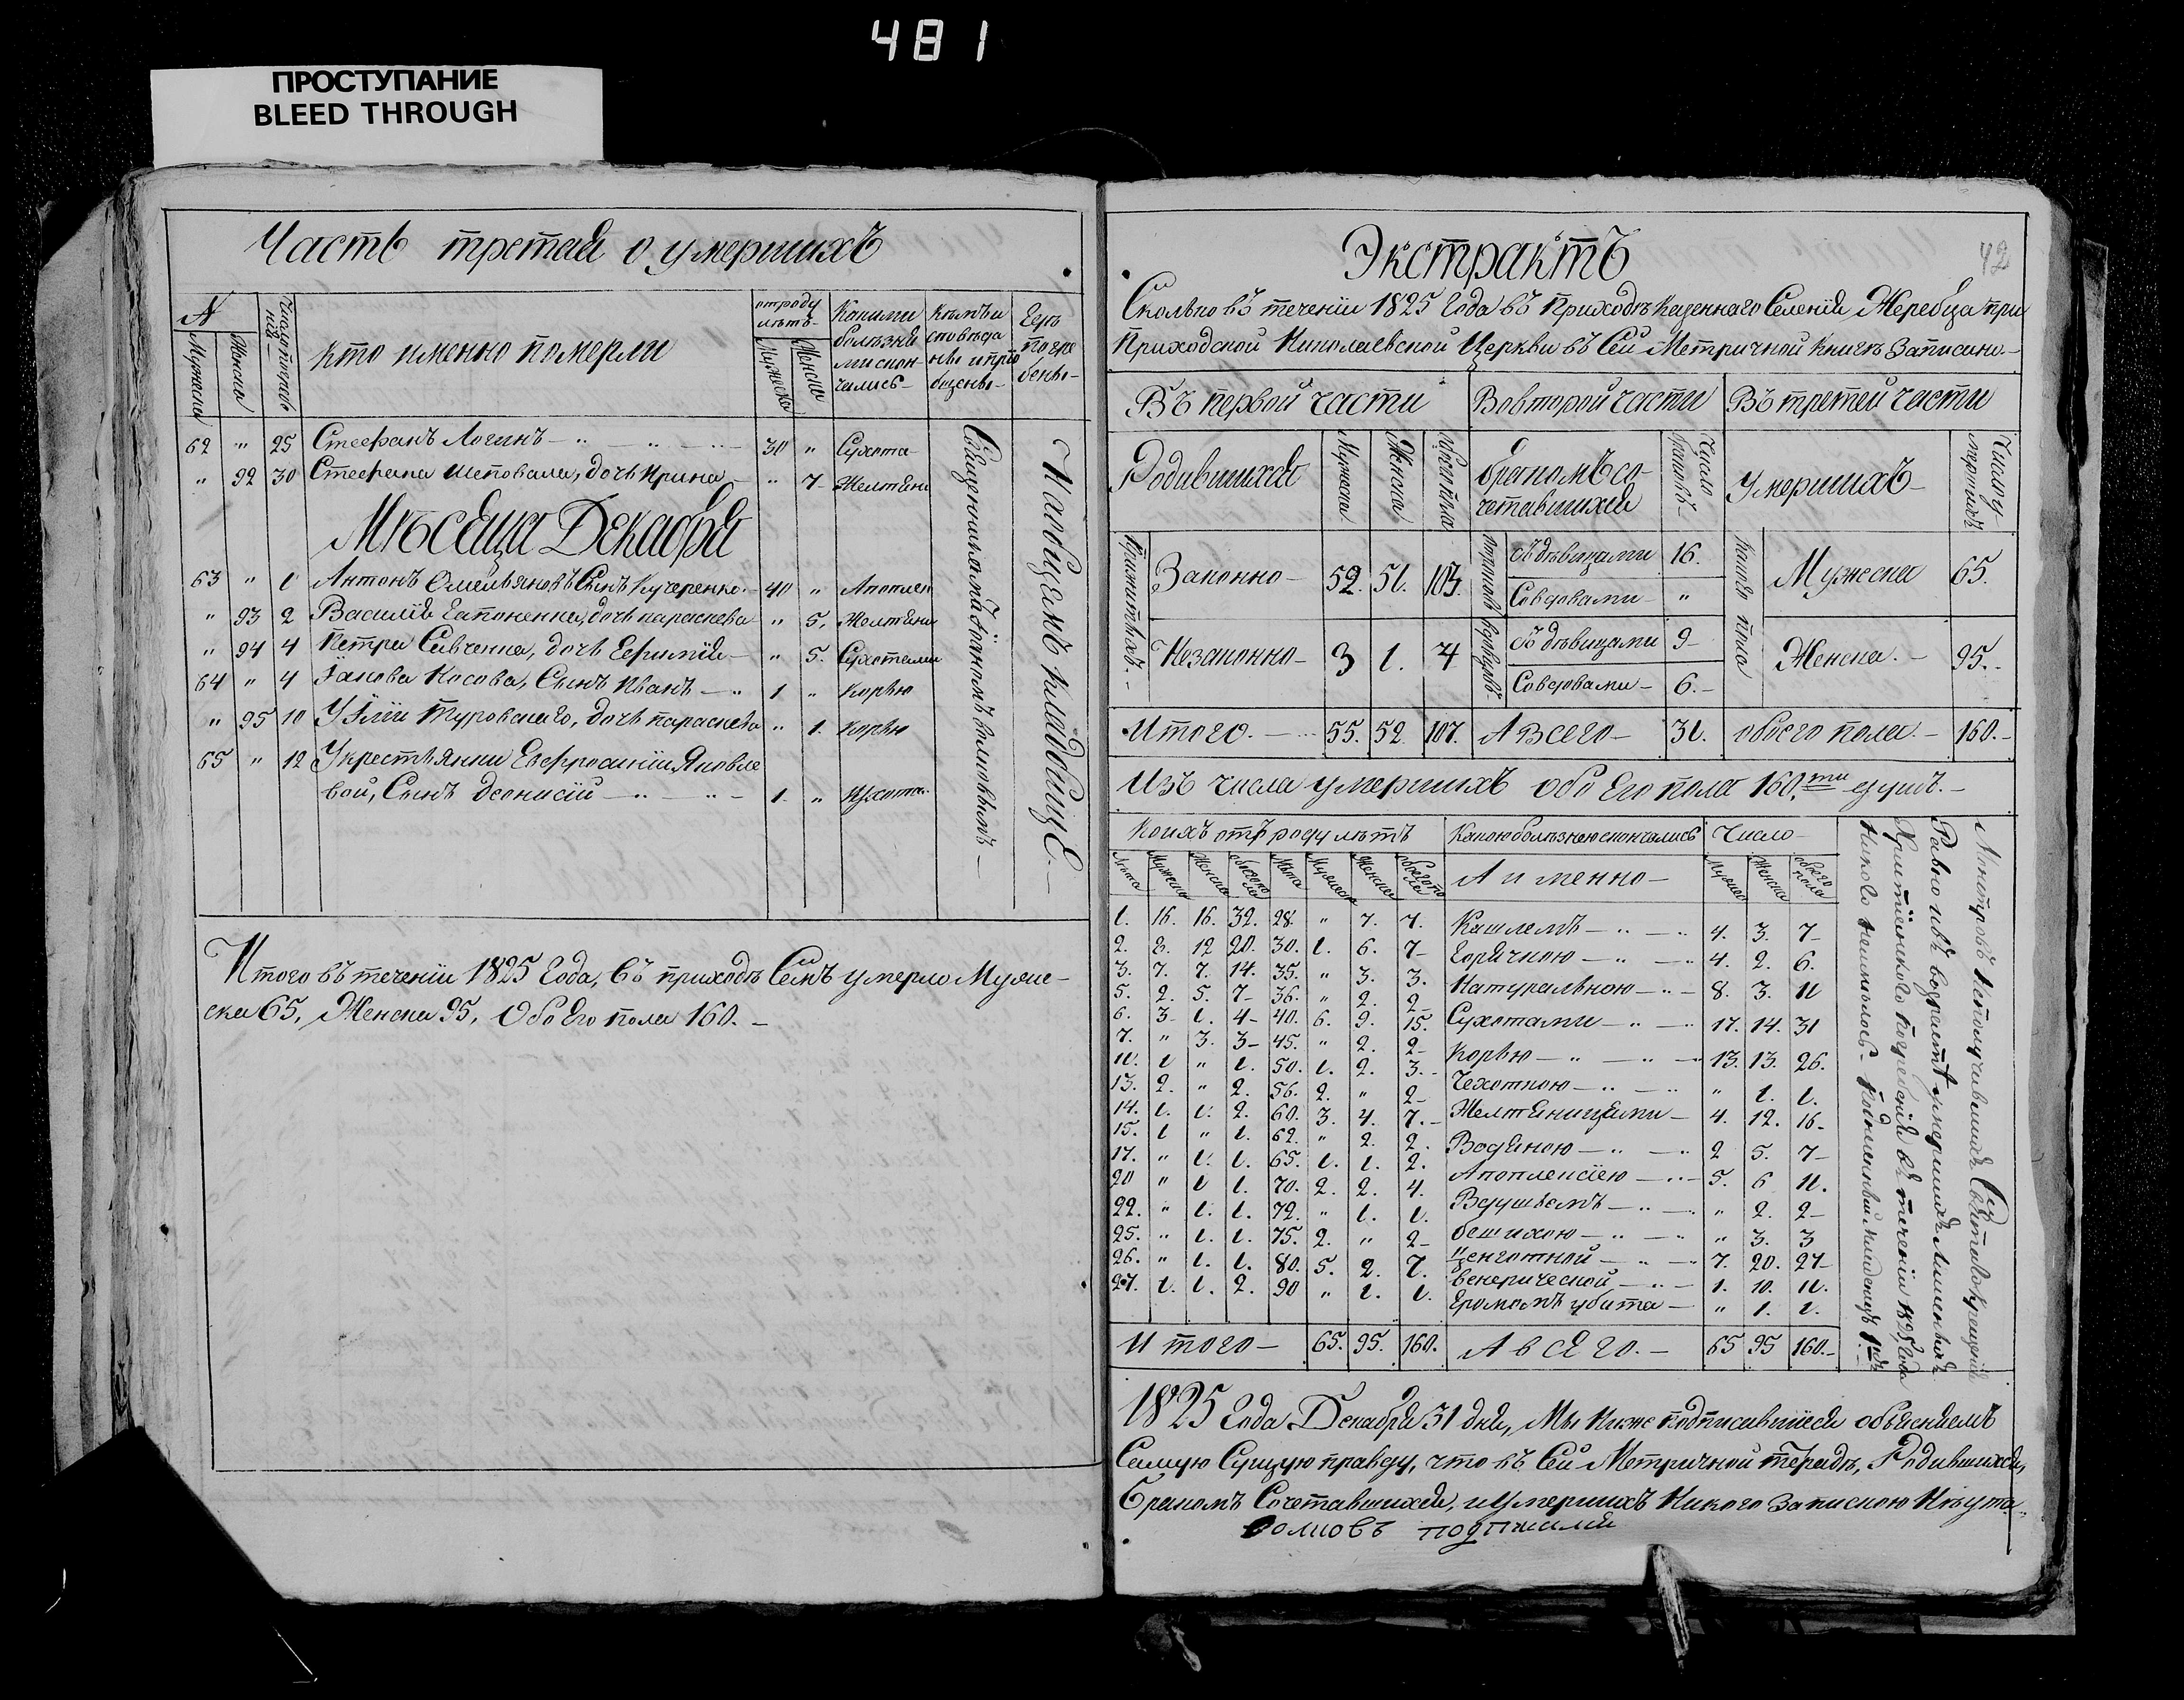 481
ПРОСТУПАНИЕ
BLEED THROUGH
Часть третая о умершихъ
N
Мужеска
Женска
кто именно померли
отроду лѣтъ
Мужеска
Женска
Какими болѣзнями скончались
кѣмъ исповѣданы и приобщены
Где погребены
62 " 25 Стефанъ Логинъ 30 " Сухота
" 92 30 Стефана Шаповала, дочь Ирина " 7 Желтяни
Мѣсеца Декабря
63 " 1 Антонъ Омельяновъ Сынъ Кучеренко 40 " Апоплек
" 93 2 Василія Гапоненка, дочь параскева " 5. Желтяни
" 94 4 Петра Савченка, дочь Ефимія " 5. Сухотами
64 " 4 Іакова Косова, Сынъ Иванъ 1 " Корью
" 95 10 У Іліи Туровскаго, дочь параскева " 1. Корью
65 " 12 Укрестьянки Евфросиніи Яковле
вой, Сынъ Деонисій 1 " Сухота
Священникомъ Іоанномъ
На общемъ кладбище
Итого въ теченіи 1825 Года, въ приходѣ Семъ умерло Муже-
ска 65, Женска 95, Обоего пола 160.
42
Экстрактъ
Сколько въ теченіи 1825 Года въ Приходѣ Казеннаго Селенія Жеребца при
Приходской Николаевской Церкви въ Сей Метричной Книгѣ Записано
Въ первой части Во второй части Въ третей части
Родившихся Мужеска Женска Обоего пола бракомъ сочетавшихся Число браковъ Умершихъ Число умершихъ
Законно 52. 51. 103. съ дѣвицами 16. Мужеска 65.
Со вдовами "
Незаконно 3 1. 4 съ дѣвицами 9 Женска 95.
Со вдовами 6.
Итого. 55. 52 107. А Всего 31. обоего пола. 160.
Изъ числа умершихъ обоего пола 160.ти душъ.
Коихъ отъ роду лѣтъ Какою болѣзнею скончались Число
Лѣта Мужеска Женска обоего пола Лѣта Мужеска Женска обоего пола А именно Мужеска Женска обоего пола
1. 16. 16. 32. 28. " 7. 7. Кашлемъ 4. 3. 7
2. 8. 12 20. 30. 1. 6. 7 Горячкою 4. 2. 6.
3. 7. 7. 14. 35. " 3. 3. Натуральною 8. 3. 11
5. 2. 5. 7 36. " 2. 2 Сухотами 17. 14. 31
6. 3 1. 4 40. 6. 9. 15. Корью 13. 13. 26.
7. " 3. 3 45. " 2. 2 Чехоткою " 1. 1.
10. 1 " 1. 50. 1. 2. 3. Желтяницями 4. 12. 16
13. 2. " 2. 56. 2. " 2 Водяною 2 5. 7
14. 1. 1. 2. 60. 3. 4. 7. Апоплексіею 5. 6 11.
15. 1 " 1. 62. " 2. 2. Вдушьемъ " 2. 2
17. " 1. 1. 65. 1. 1. 2. бешихою " 3. 3
20 " 1 1. 70. 2. 2. 4. Ценготной 7. 20. 27
22. " 1. 1. 72. " 1. 1. венерической 1. 10. 11.
25. " 1. 1. 75. 2. " 2 Громомъ убита " 1. 1.
26. " 1. 1. 80. 5. 2. 7.
27. 1. 1. 2. 90 " 1. 1.
Итого 65. 95. 160. А всего. 65 95 160.
Равно и въ возрастѣ умершихъ
Христіанского погребенія въ теченіи 1825 Года
1825 Года Декабря 31 дня, Мы Ниже подписавшіеся объясняемъ
Самую Сущую правду, что въ Сей Метричной тетрадѣ, Родившихся,
Бракомъ Сочетавшихся, и Умершихъ Никого Запискою Не ута